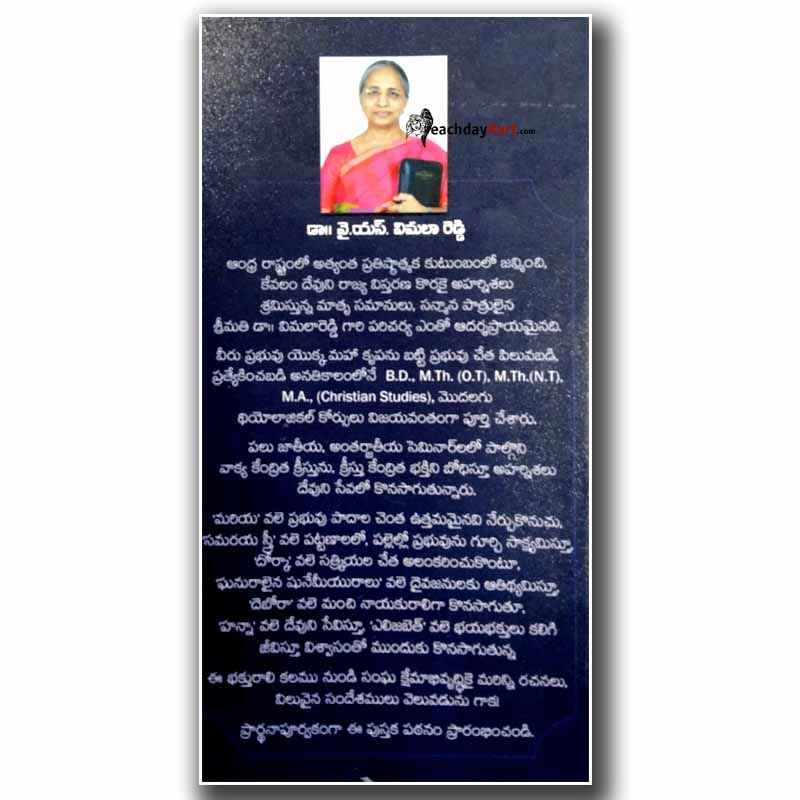 eachdayKart.com
డా॥ వై.యస్. విమలా రెడ్డి
ఆంధ్ర రాష్ట్రంలో అత్యంత ప్రతిష్ఠాత్మక కుటుంబంలో జన్మించి,
కేవలం దేవుని రాజ్య విస్తరణ కొరకై అహర్నిశలు
శ్రమిస్తున్న మాతృ సమానులు, సన్మాన పాత్రులైన
శ్రీమతి డా॥ విమలారెడ్డి గారి పరిచర్య ఎంతో ఆదర్శప్రాయమైనది.
వీరు ప్రభువు యొక్క మహా కృపను బట్టి ప్రభువు చేత పిలువబడి,
ప్రత్యేకించబడి అనతికాలంలోనే B.D., M.Th. (O.T), M.Th.(N.T),
M.A., (Christian Studies), మొదలగు
థియోలాజికల్ కోర్సులు విజయవంతంగా పూర్తి చేశారు.
పలు జాతీయ, అంతర్జాతీయ సెమినార్‌లలో పాల్గొని
వాక్య కేంద్రిత క్రీస్తును, క్రీస్తు కేంద్రిత భక్తిని బోధిస్తూ అహర్నిశలు
దేవుని సేవలో కొనసాగుతున్నారు.
'మరియ' వలె ప్రభువు పాదాల చెంత ఉత్తమమైనవి నేర్చుకొనుచు,
'సమరయ స్త్రీ' వలె పట్టణాలలో, పల్లెల్లో ప్రభువును గూర్చి సాక్ష్యమిస్తూ,
'దోర్కా' వలె సత్క్రియల చేత అలంకరించుకొంటూ,
'ఘనురాలైన షునేమీయురాలు' వలె దైవజనులకు ఆతిథ్యమిస్తూ,
'దెబోరా' వలె మంచి నాయకురాలిగా కొనసాగుతూ,
'హన్నా' వలె దేవుని సేవిస్తూ, 'ఎలిజబెత్' వలె భయభక్తులు కలిగి
జీవిస్తూ విశ్వాసంతో ముందుకు కొనసాగుతున్న
ఈ భక్తురాలి కలము నుండి సంఘ క్షేమాభివృద్ధికై మరిన్ని రచనలు,
విలువైన సందేశములు వెలువడును గాక!
ప్రార్థనాపూర్వకంగా ఈ పుస్తక పఠనం ప్రారంభించండి.